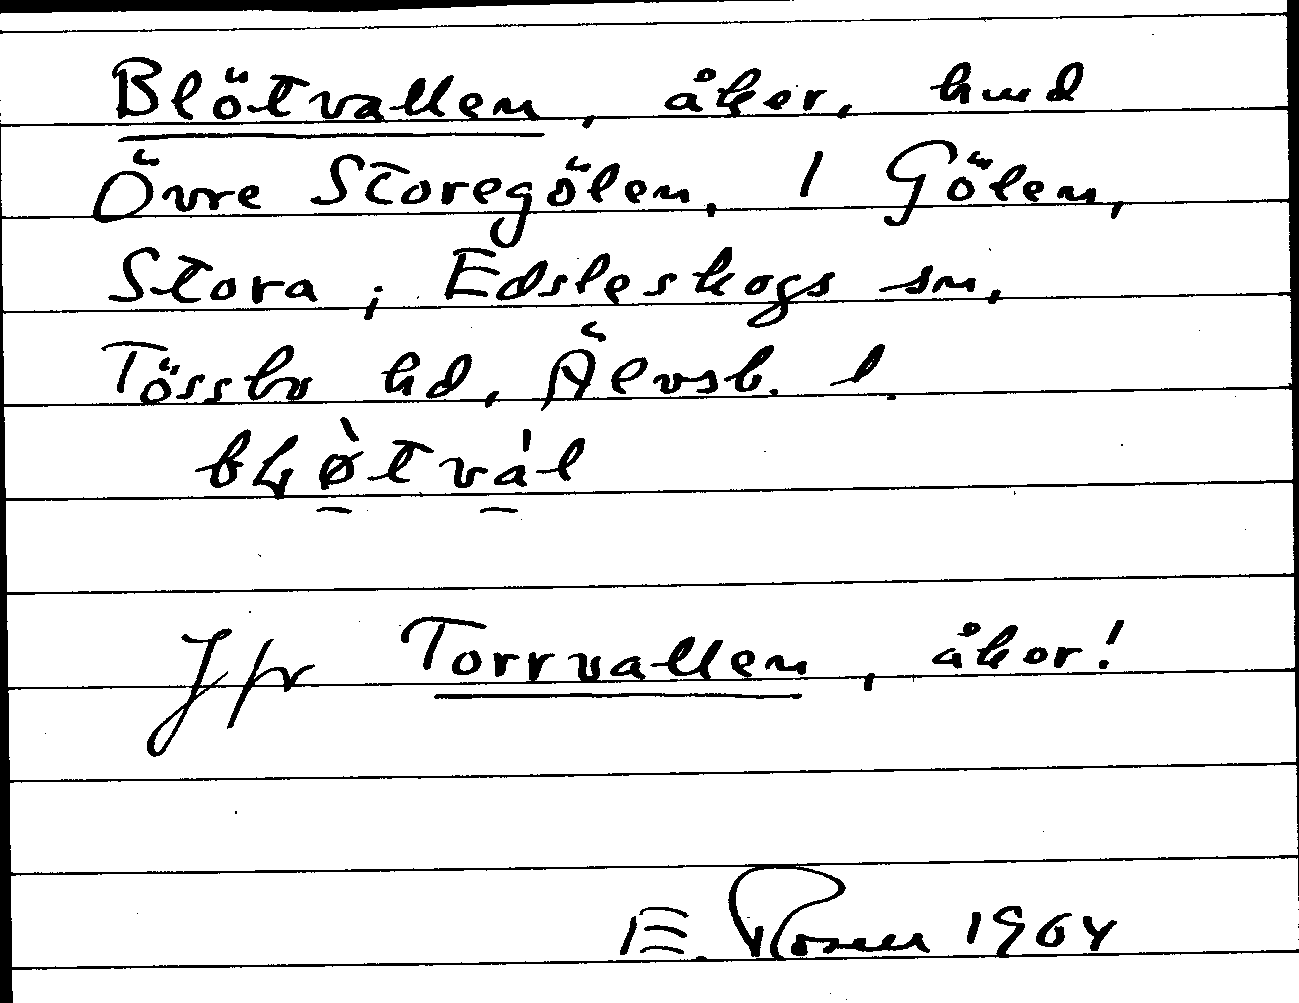 Blötvallen, åker, hmd
Övre Storegölen, 1 Gölen,
Stora; Edsleskogs sn,
Tössbo hd, Älvsb. l.
Jfr Torrvallen, åker!
E. Rosén 1964